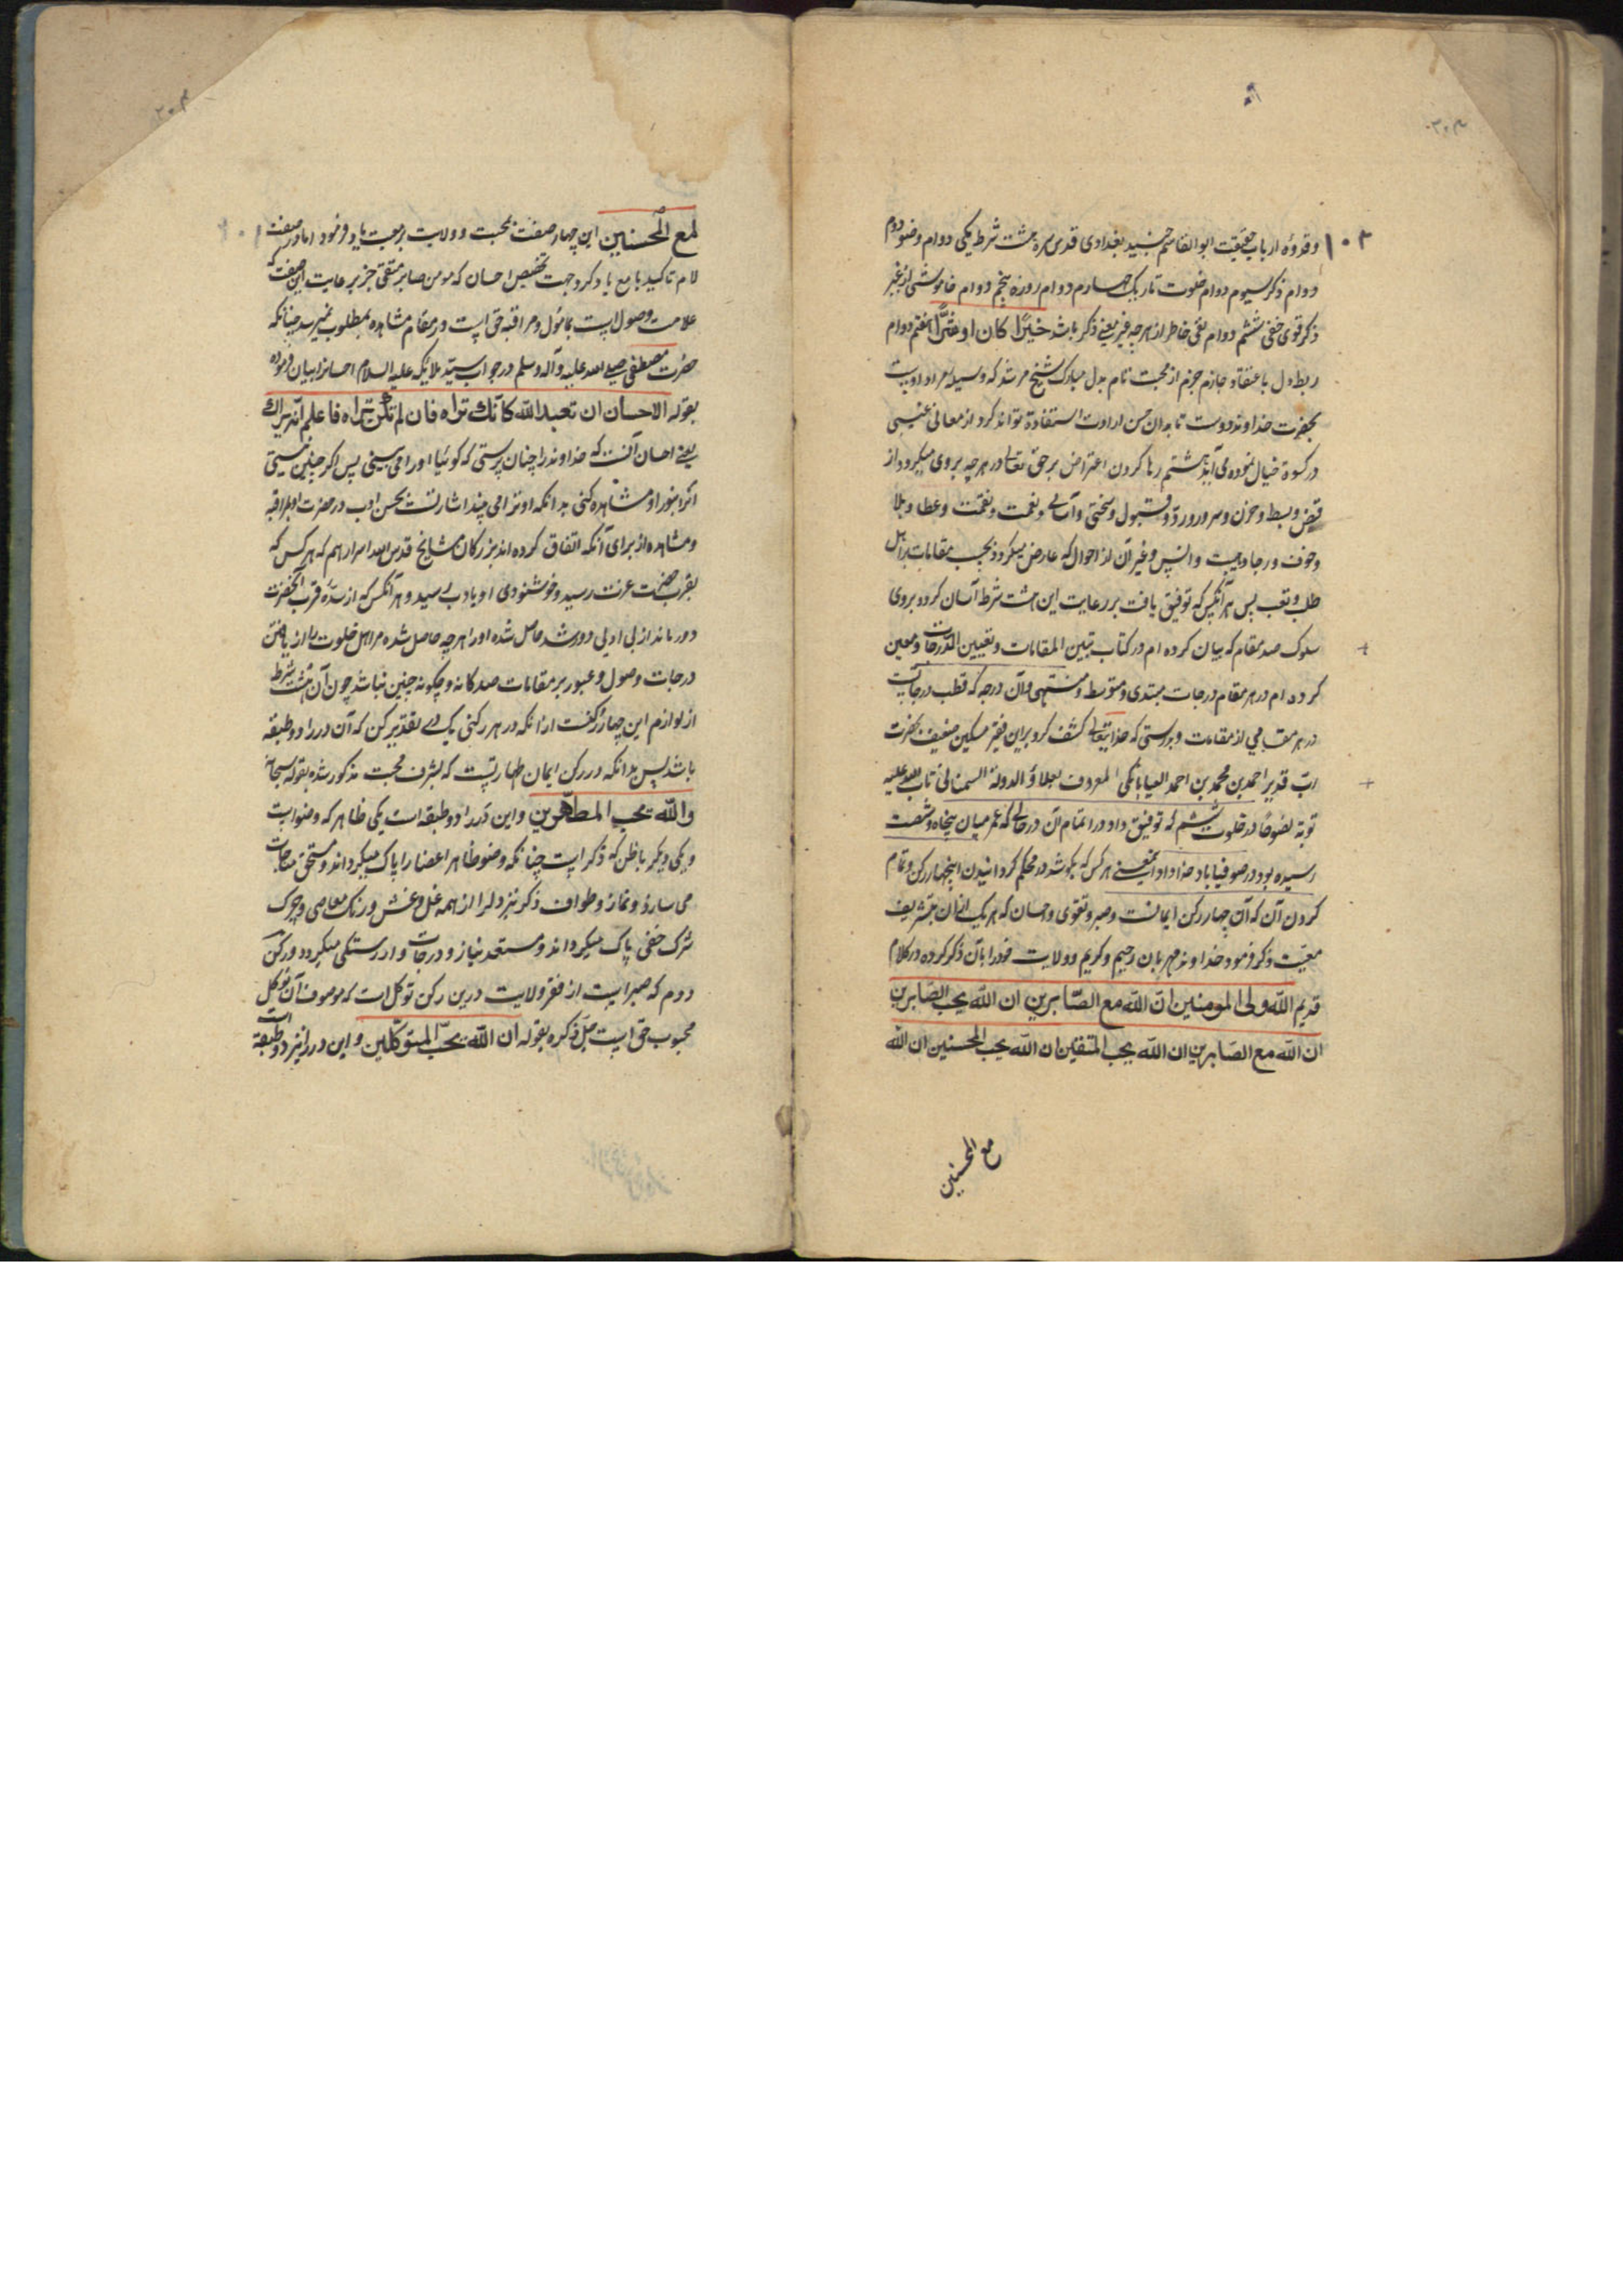 وقدوهٔ ارباب حقیقت ابوالقاسم جنید بغدادی قدس سره هشت شرط یکی دوام وضو دوم
دوام ذکر سیوم دوام خلوت تاریک چهارم دوام روزه پنجم دوام خاموشی از غیر
ذکر قوی خفی ششم دوام نفی خاطر از هرچه غیر یعنی ذکر باشد خیرًا کان او شرًّا هفتم دوام
ربط دل باعتقاد جازم جزم از محبت تام بدل مبارک شیخ مرشد که وسیله مراد اوست
بحضرت خداوند دوست تا بدان حسن ارادت استفادة تواند کرد از معانی غیبی
در کسوة خیال نموده می آید هشتم رها کردن اعتراض بر حق تعالی در هرچه بر وی میکرود از
قبض و بسط و حزن و سرور و ردّ و قبول و سختی و آسانی و نعمت و نقمت و عطا و بلا
و خوف و رجا و هیبت و انس و غیر آن از احوال که عارض میکردد بحسب مقامات براهل
طلب و تعب پس هر آنکس که توفیق یافت بر رعایت این هشت شرط آسان کردد بر وی
سلوک صد مقام که بیان کرده ام در کتاب تبیین المقامات و تعیین الدّرجات و معین
کرده ام در هر مقام درجات مبتدی و متوسط و منتهی و آن درجه که قطب درجاتست
در هر مقامی از مقامات و براستی که خدایتعالی کشف کرد برین فقیر مسکین ضعیف بحضرت
ربّ قدیر احمد بن محمد بن احمد البیابانکی المعروف بعلاؤ الدولة السمنانی تاب الله علیه
توبة نصوحًا در خلوت ششم که توفیق داد در اتمام آن در حالی که عمر میان پنجاه و شصت
رسیده بود در صوفیاباد خداداد یعنی هر کس که بکوشد در محکم کردانیدن اینچهار رکن و تمام
کردن آن که آن چهار رکن ایمانست و صبر و تقوی و احسان که هر یک از آن بتشریف
معیّت ذکر فرمود خداوند مهربان رحیم و کریم و ولایت خود را بآن ذکر کرده در کلام
قدیم الله ولی المومنین انّ الله مع الصّابرین ان الله یحب الصّابرین
ان الله مع الصابرین ان الله یحب المتقین ان الله یحب المحسنین ان الله
مع المحسنین
لمع المحسنین این چهار صفت بمحبت و ولایت و معیت یاد فرمود اما در صفت
لام تاکید با مع یاد کرد جهت تخصیص احسان که مومن صابر متقی جز برعایت این صفت که
علامت وصولست بمامول و مراقبه حق است در مقام مشاهده بمطلوب نمیرسد چنانکه
حضرت مصطفی صلی الله علیه و آله وسلم در جواب سید ملایکه علیه السلام احسانرا بیان فرموده
بقوله الاحسان ان تعبد الله کانّک تراه فان لم تکن تراه فاعلم انّه یراک
یعنی احسان آنست که خداوند را چنان پرستی که کوئیا اورا می بینی پس اگر چنین نیستی
که او را بنور او مشاهده کنی بدانکه او ترا می بیند اشارتست بحسن ادب در حضرت او بمراقبه
و مشاهده از برای آنکه اتفاق کرده اند بزرکان مشایخ قدس الله اسرارهم که هر کس که
بقرب حضرت عزت رسید و خوشنودی او بادب رسید و هر آنکس که از سدّهٔ قرب آنحضرت
دور ماند از بی ادبی دور شد حاصل شده او را هرچه حاصل شده مر اهل خلوت را از یافتن
درجات وصول و عبور بر مقامات صدکانه و چکونه چنین نباشد چون آن هشت شرط
از لوازم این چهار رکنست از آنکه در هر رکنی یک دری تقدیر کن که آن در را دو طبقه
باشد پس بدانکه در رکن ایمان طهارتست که بشرف محبت مذکور شده بقوله سبحانه
والله یحب المطهّرین و این در را دو طبقه است یکی ظاهر که وضو است
و یکی دیگر باطن که ذکر است چنانکه وضو ظاهر اعضا را پاک میکرداند و مستحق مناجات
می سازد و نماز و طواف ذکر نیز دل را از همه غل و غش و زنک معاصی و چرک
شرک خفی پاک میکرداند و مستعد نیاز و درجات وارستگی میکردد و رکن
دوم که صبر است از فقر ولایت درین رکن توکل است که موصوف آن توکل
محبوب حق است جلّ ذکره بقوله ان الله یحبّ المتوکّلین و این در را نیز دو طبقه است